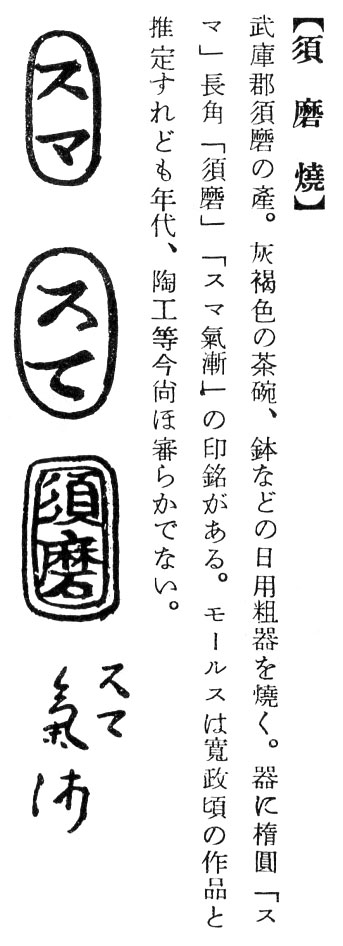 【須磨燒】
武庫郡須磨の產。灰褐色の茶碗、鉢などの日用粗器を燒く。器に楕圓「ス
マ」長角「須磨」「スマ氣漸」の印銘がある。モールスは寬政頃の作品と
推定すれども年代、陶工等今尙ほ審らかでない。
スマ
スマ
須磨
スマ
氣